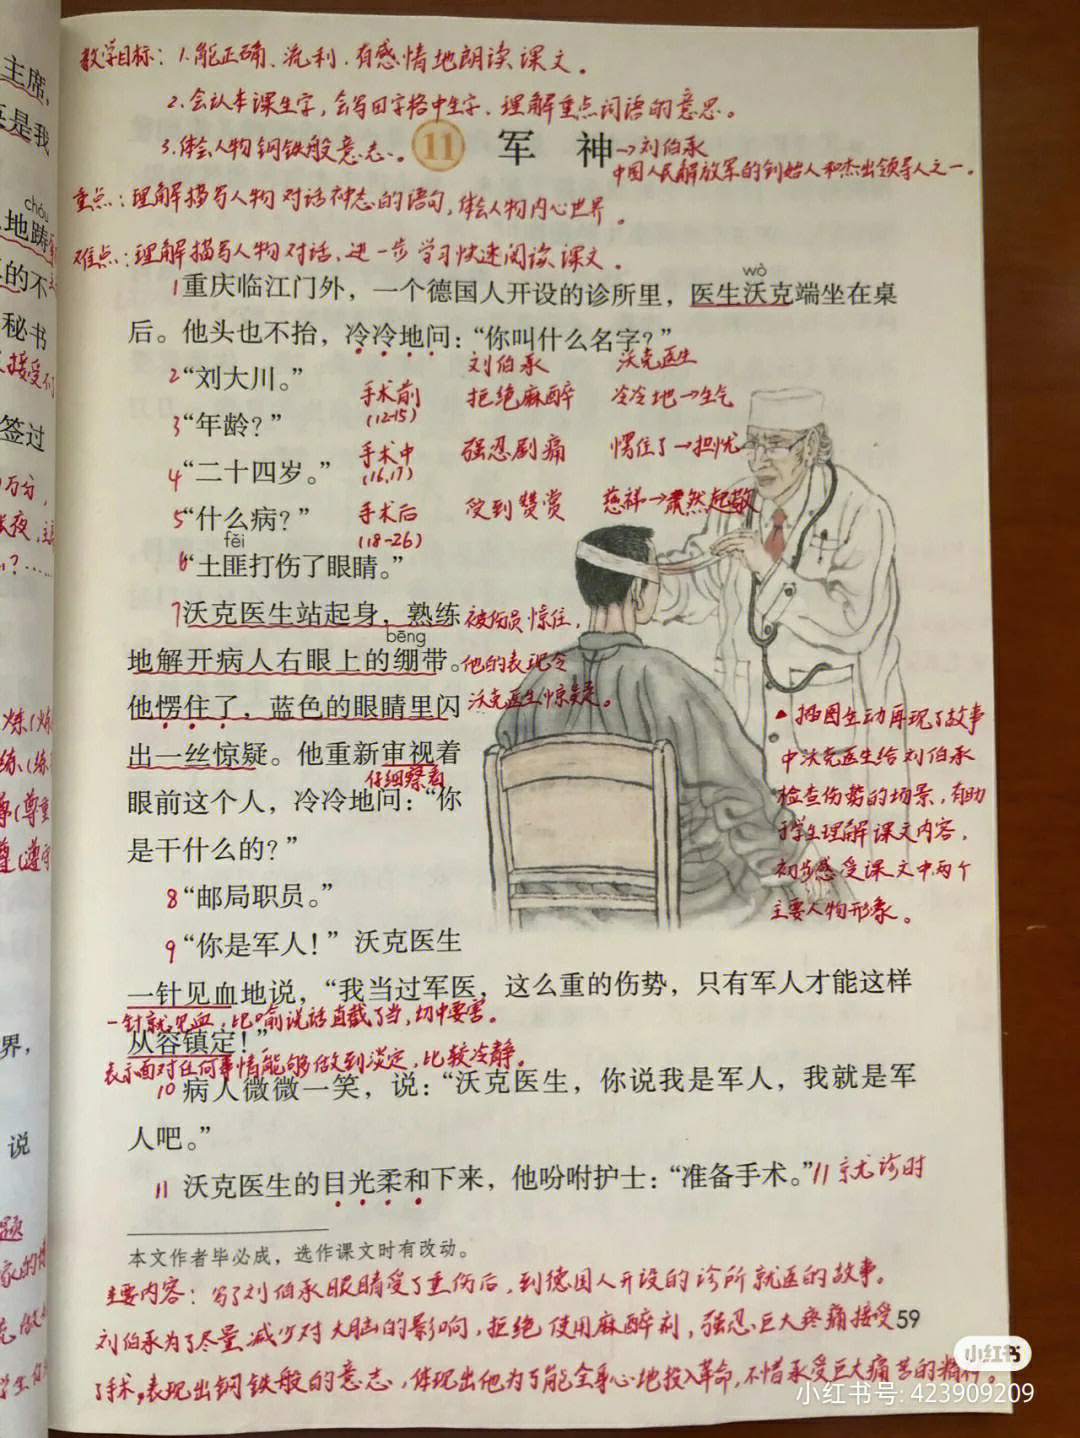 教学目标：1.能正确、流利、有感情地朗读课文。
2.会认本课生字，会写田字格中生字、理解重点词语的意思。
3.体会人物钢铁般意志。
11 军 神 →刘伯承
中国人民解放军的创始人和杰出领导人之一。
重点：理解描写人物对话神态的语句，体会人物内心世界。
难点：理解描写人物对话，进一步学习快速阅读课文。
wò
1重庆临江门外，一个德国人开设的诊所里，医生沃克端坐在桌
后。他头也不抬，冷冷地问：“你叫什么名字？”
刘伯承 沃克医生
2“刘大川。”
手术前 拒绝麻醉 冷冷地→生气
(12-15)
3“年龄？”
手术中 强忍剧痛 愣住了→担忧
(16,17)
4“二十四岁。”
5“什么病？”
手术后 受到赞赏 慈祥→肃然起敬
(18-26)
fěi
6“土匪打伤了眼睛。”
7沃克医生站起身，熟练
bēng
地解开病人右眼上的绷带。
他愣住了，蓝色的眼睛里闪
出一丝惊疑。他重新审视着
仔细察看
眼前这个人，冷冷地问：“你
是干什么的？”
被伤员惊住，
他的表现令
沃克医生惊疑。
▲插图生动再现了故事
中沃克医生给刘伯承
检查伤势的场景，有助
于学生理解课文内容，
初步感受课文中两个
主要人物形象。
8“邮局职员。”
9“你是军人！”沃克医生
一针见血地说，“我当过军医，这么重的伤势，只有军人才能这样
一针就见血，比喻说话直截了当，切中要害。
从容镇定！”
表示面对任何事情能够做到淡定，比较冷静。
10 病人微微一笑，说：“沃克医生，你说我是军人，我就是军
人吧。”
11 沃克医生的目光柔和下来，他吩咐护士：“准备手术。” 11 就诊时
本文作者毕必成，选作课文时有改动。
主要内容：写了刘伯承眼睛受了重伤后，到德国人开设的诊所就医的故事。
刘伯承为了尽量减少对大脑的影响，拒绝使用麻醉剂，强忍巨大疼痛接受
59
了手术，表现出钢铁般的意志，体现出他为了能全身心地投入革命，不惜承受巨大痛苦的精神。
主席，
是我
chóu
地踌
的不
秘书
接受
签过
万分，
夜，
界，
说
小红书
小红书号: 423909209